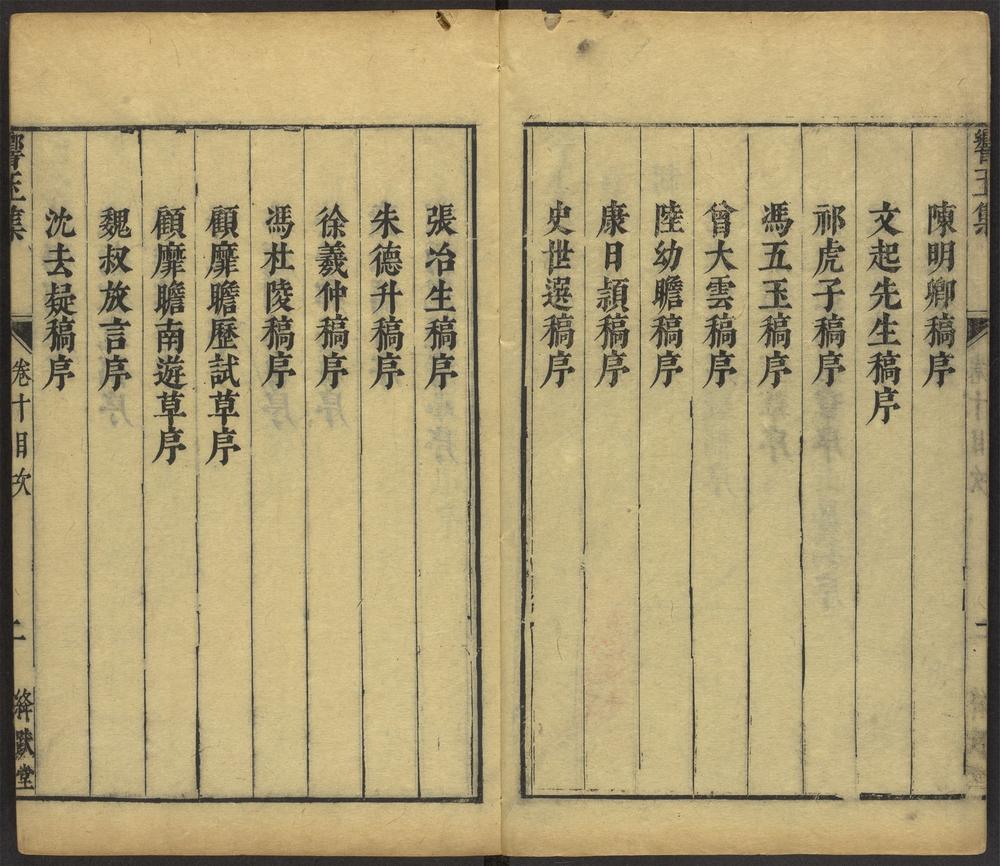 陳明卿稿序
文起先生稿序
祁虎子稿序
馮五玉稿序
曾大雲稿序
陸幼瞻稿序
康日頴稿序
史世選稿序
張冶生稿序
朱德升稿序
徐羲仲稿序
馮杜陵稿序
顧靡瞻歷試草序
顧靡瞻南遊草序
魏叔放言序
沈去疑稿序
響玉集
卷十目次
二
絳趺堂